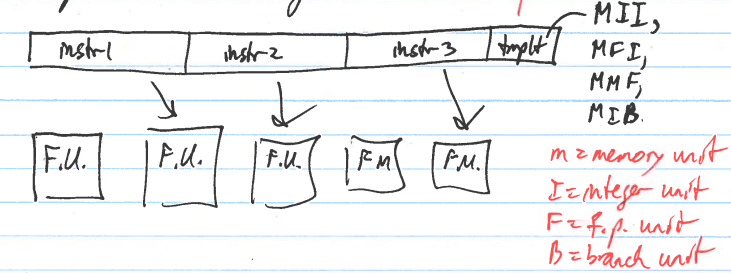 MII,
instr-1 instr-2 instr-3 tmplt
MFI,
MMF,
MIB.
F.U. F.U. F.U. F.U. F.U.
M = memory unit
I = integer unit
F = f.p. unit
B = branch unit